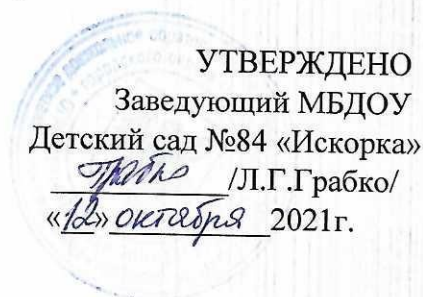 УТВЕРЖДЕНО
Заведующий МБДОУ
Детский сад №84 «Искорка»
Грабко /Л.Г.Грабко/
«12» октября 2021г.